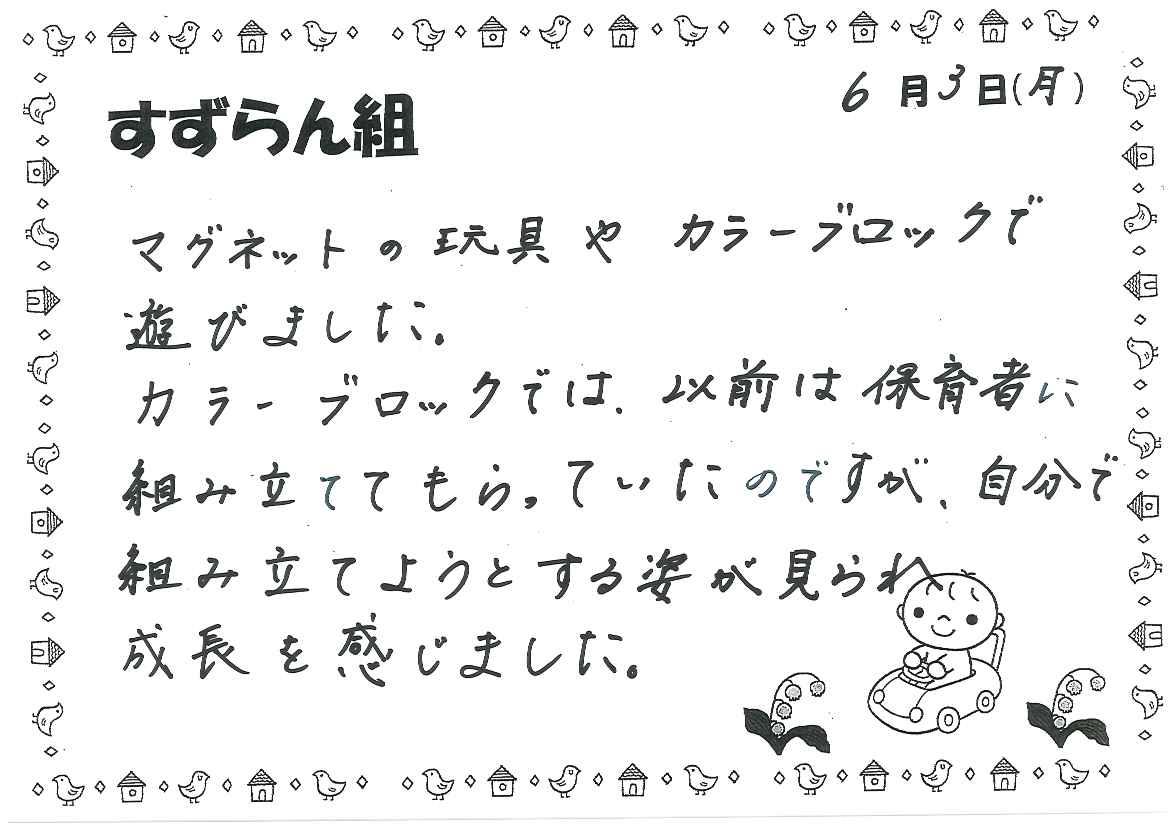 6月3日(月)
すずらん組
マグネットの玩具やカラーブロックで
遊びました。
カラーブロックでは、以前は保育者に
組み立ててもらっていたのですが、自分で
組み立てようとする姿が見られ
成長を感じました。